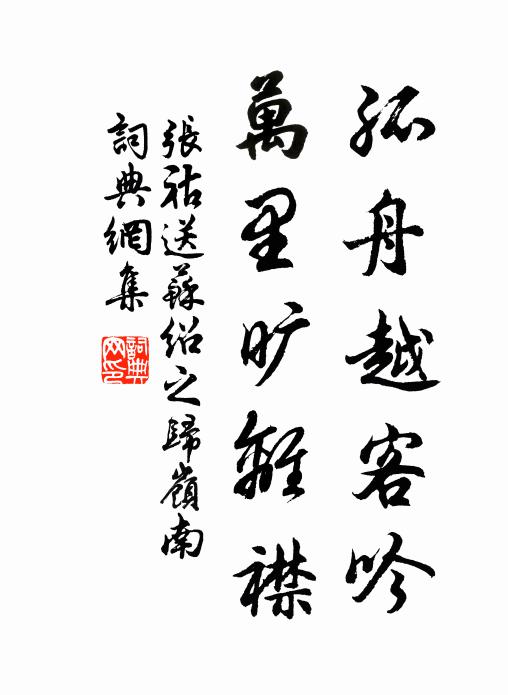 孤舟越客吟
萬里旷離襟
張祜送蘇绍之歸嶺南
詞典網集
詞典网印